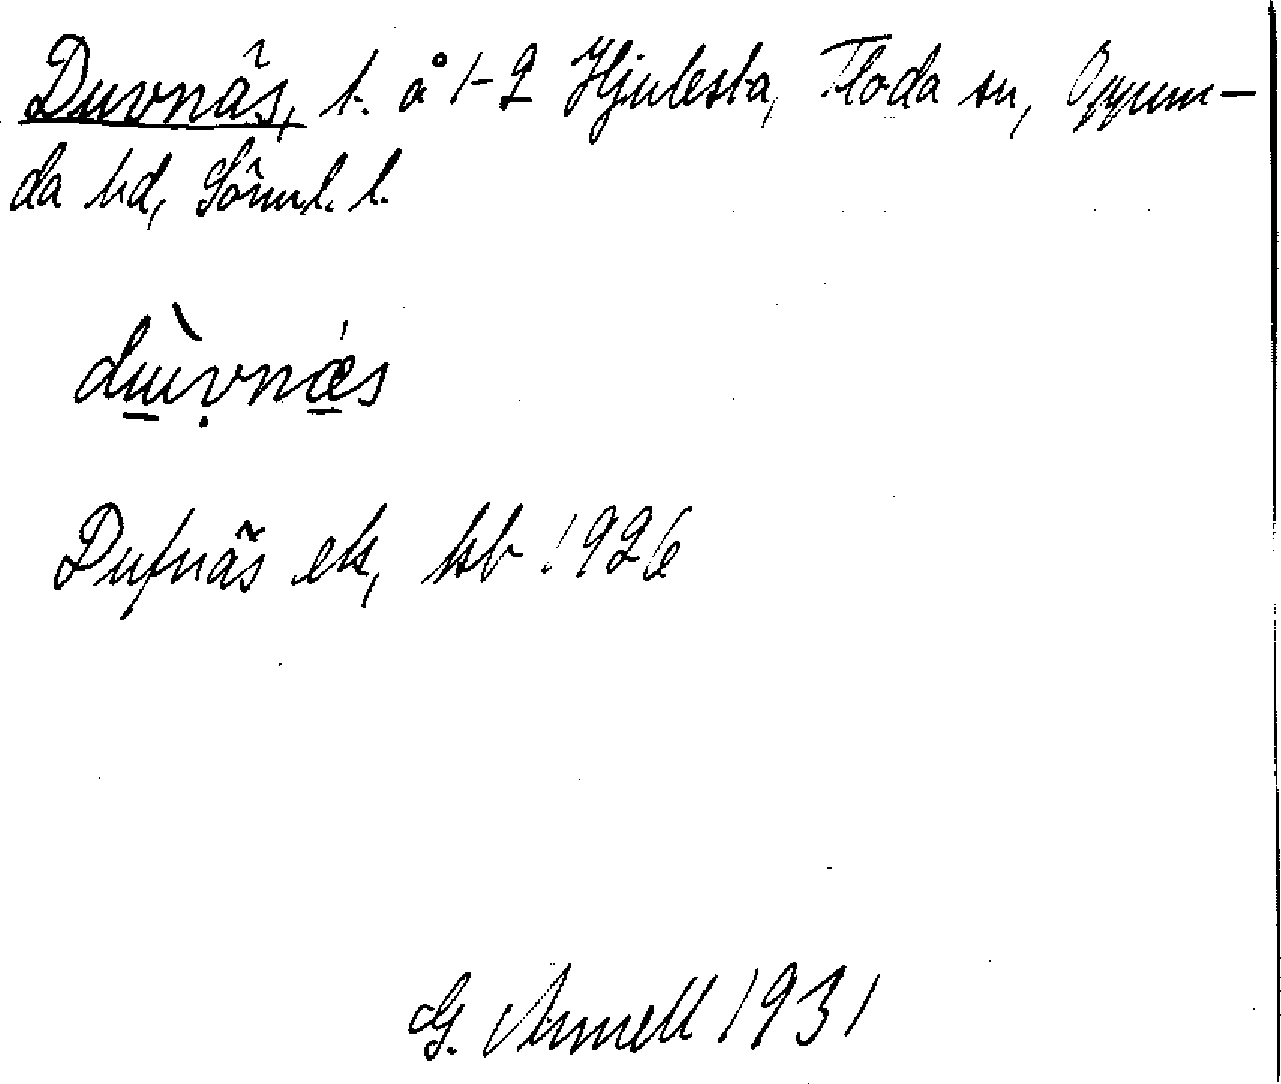 Duvnäs, t. å 1-2 Hjulesta, Floda sn, Oppun-
da hd, Sörml. l.
dùvnæs
Dufnäs ek, kb 1926
G. Arnell 1931